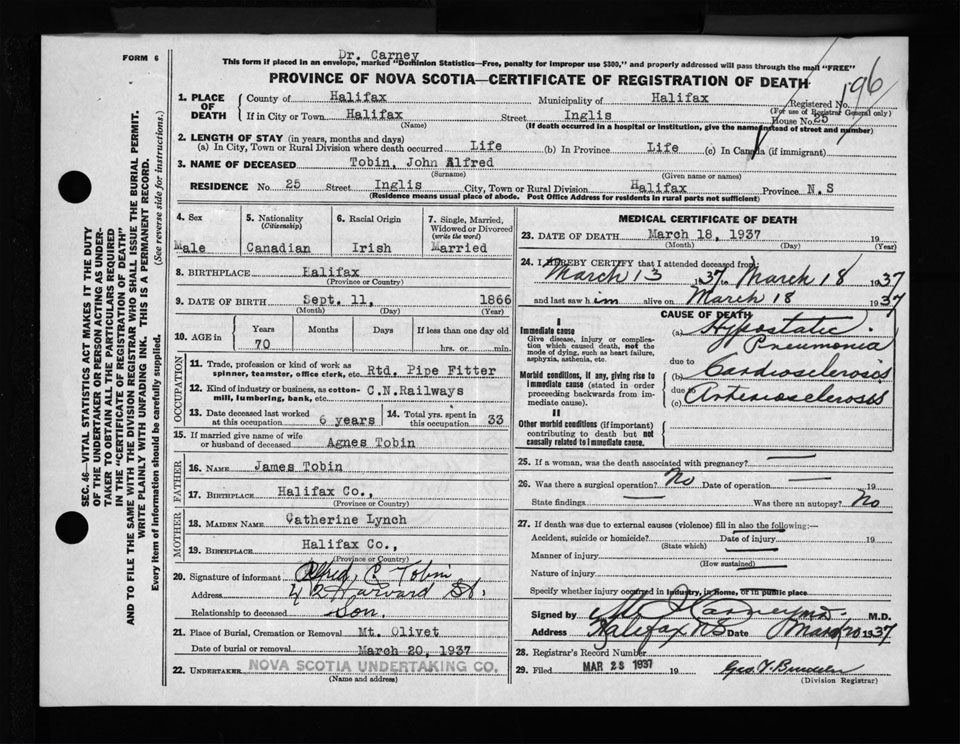 FORM 6
Dr. Carney
This form if placed in an envelope, marked "Dominion Statistics—Free, penalty for improper use $300," and properly addressed will pass through the mail "FREE"
PROVINCE OF NOVA SCOTIA—CERTIFICATE OF REGISTRATION OF DEATH
196
SEC. 46—VITAL STATISTICS ACT MAKES IT THE DUTY
OF THE UNDERTAKER OR PERSON ACTING AS UNDER-
TAKER TO OBTAIN ALL THE PARTICULARS REQUIRED
IN THE "CERTIFICATE OF REGISTRATION OF DEATH"
AND TO FILE THE SAME WITH THE DIVISION REGISTRAR WHO SHALL ISSUE THE BURIAL PERMIT.
WRITE PLAINLY WITH UNFADING INK. THIS IS A PERMANENT RECORD.
Every item of information should be carefully supplied. (See reverse side for instructions.)
1. PLACE OF DEATH
County of Halifax Municipality of Halifax Registered No.
(For use of Registrar General only)
If in City or Town Halifax Street Inglis House No. 25
(Name) (If death occurred in a hospital or institution, give the name instead of street and number)
2. LENGTH OF STAY (in years, months and days)
(a) In City, Town or Rural Division where death occurred Life (b) In Province Life (c) In Canada (if immigrant)
3. NAME OF DECEASED Tobin, John Alfred
(Surname) (Given name or names)
RESIDENCE No. 25 Street Inglis City, Town or Rural Division Halifax Province N.S
(Residence means usual place of abode. Post Office Address for residents in rural parts not sufficient)
4. Sex 5. Nationality (Citizenship) 6. Racial Origin 7. Single, Married, Widowed or Divorced (write the word)
Male Canadian Irish Married
8. BIRTHPLACE Halifax
(Province or Country)
9. DATE OF BIRTH Sept. 11, 1866
(Month) (Day) (Year)
10. AGE in Years Months Days If less than one day old
70 hrs. or min.
OCCUPATION
11. Trade, profession or kind of work as spinner, teamster, office clerk, etc. Rtd. Pipe Fitter
12. Kind of industry or business, as cotton-mill, lumbering, bank, etc. C.N.Railways
13. Date deceased last worked at this occupation 6 years 14. Total yrs. spent in this occupation 33
15. If married give name of wife or husband of deceased Agnes Tobin
FATHER
16. NAME James Tobin
17. BIRTHPLACE Halifax Co.,
(Province or Country)
MOTHER
18. MAIDEN NAME Catherine Lynch
19. BIRTHPLACE Halifax Co.,
(Province or Country)
20. Signature of informant Alfred C Tobin
Address 42 Harvard St,
Relationship to deceased Son.
21. Place of Burial, Cremation or Removal Mt. Olivet
Date of burial or removal March 20, 1937
22. UNDERTAKER NOVA SCOTIA UNDERTAKING CO.
(Name and address)
MEDICAL CERTIFICATE OF DEATH
23. DATE OF DEATH March 18, 1937 19
(Month) (Day) (Year)
24. I HEREBY CERTIFY that I attended deceased from:
March 13 1937 to March 18 1937
and last saw him alive on March 18 1937
CAUSE OF DEATH
I
Immediate cause
Give disease, injury or complication which caused death, not the mode of dying, such as heart failure, asphyxia, asthenia, etc.
(a) Hypostatic Pneumonia
due to
Morbid conditions, if any, giving rise to immediate cause (stated in order proceeding backwards from immediate cause).
(b) Cardiosclerosis
due to
(c) Arteriosclerosis
II
Other morbid conditions (if important) contributing to death but not causally related to immediate cause.
25. If a woman, was the death associated with pregnancy?
26. Was there a surgical operation? No Date of operation 19
State findings Was there an autopsy? No
27. If death was due to external causes (violence) fill in also the following:—
Accident, suicide or homicide? Date of injury 19
(State which)
Manner of injury
(How sustained)
Nature of injury
Specify whether injury occurred in Industry, in Home, or in public place
Signed by Carney M.D. M.D.
Address Halifax NS Date March 20 1937
28. Registrar's Record Number
29. Filed MAR 23 1937 19
(Division Registrar)